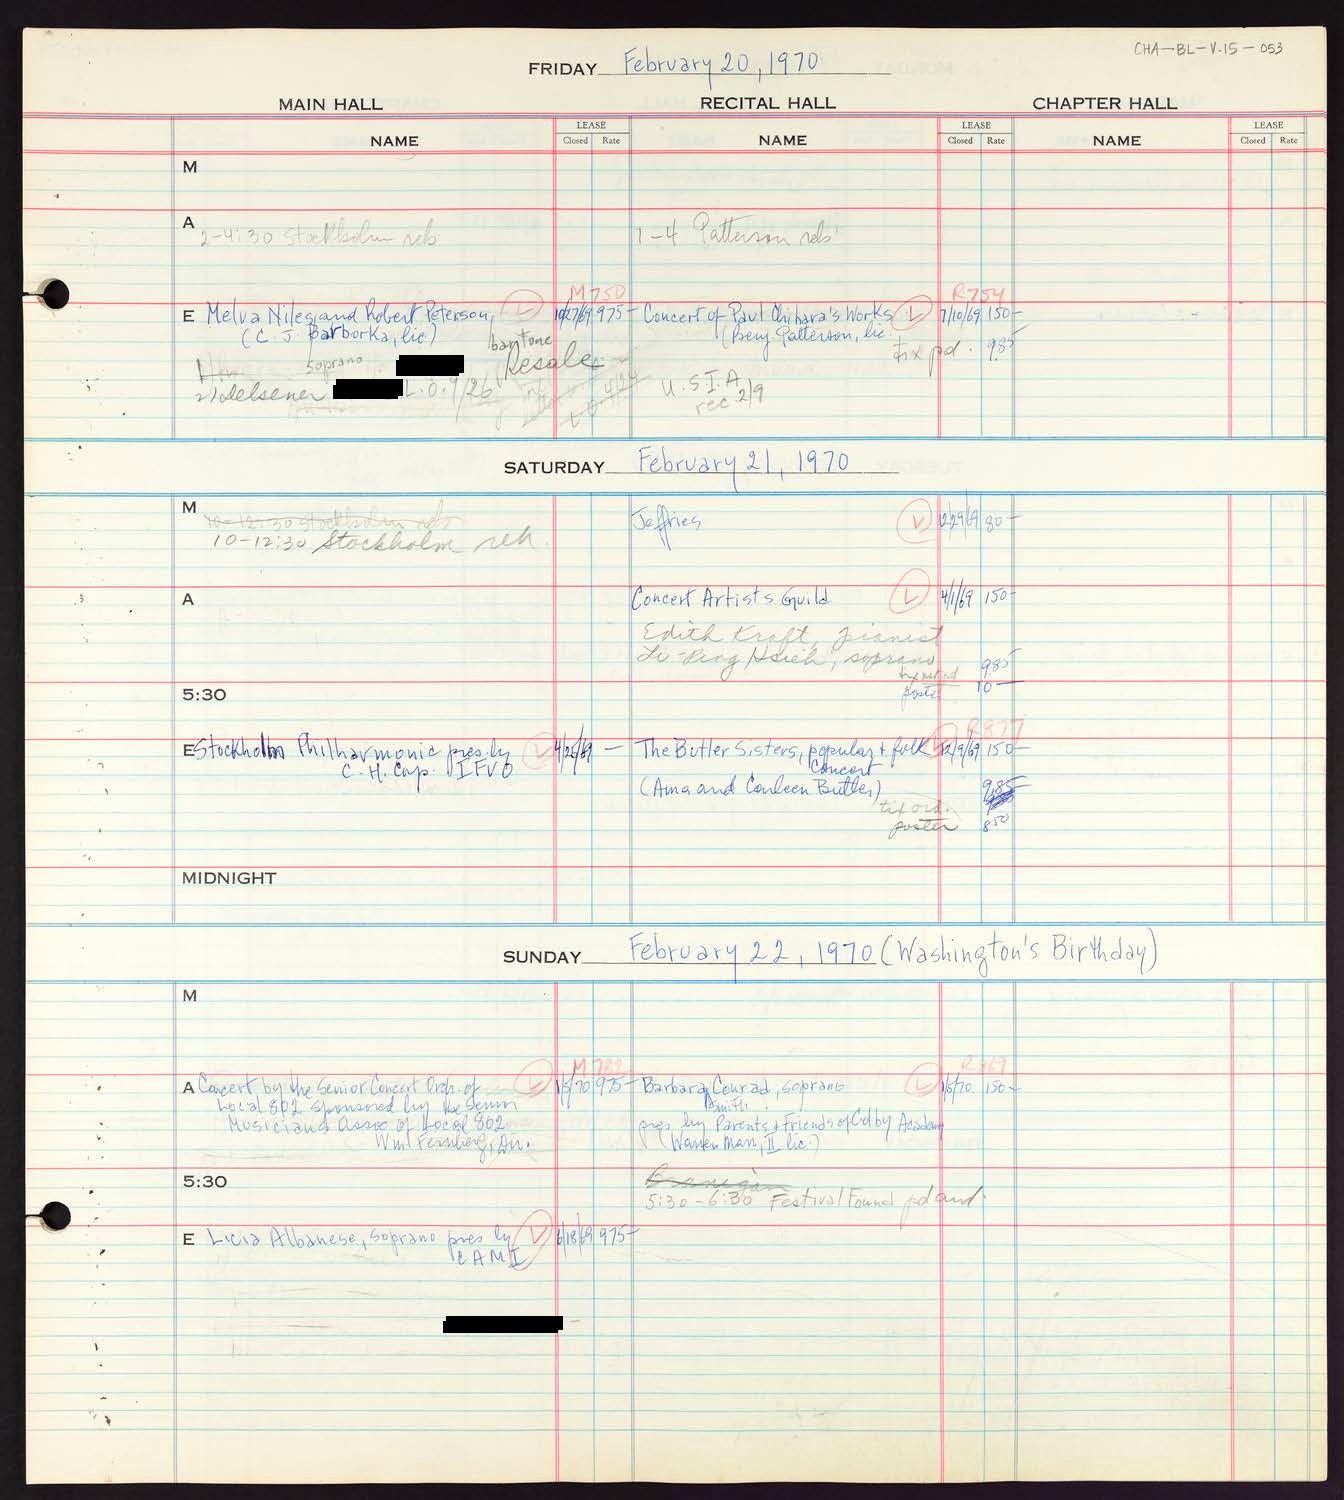 CHA-BL-V.15-053
FRIDAY February 20, 1970
MAIN HALL RECITAL HALL CHAPTER HALL
NAME LEASE Closed Rate NAME LEASE Closed Rate NAME LEASE Closed Rate
M
A
2-4:30 Stockholm reh
1-4 Patterson reh
M750 R754
E Melva Niles and Robert Peterson, L 10/27/69 975- Concert of Paul Chihara's Works L 7/10/69 150-
(C. J. Barborka, lic.) (Benj. Patterson, lic.
baritone tix pd. 9.85
soprano Resale
2) Delsener L.O. 9/26 U.S.I.A.
rec. 2/9
SATURDAY February 21, 1970
M 10-12:30 Stockholm reh Jeffries L 12/29/69 80-
10-12:30 Stockholm reh.
A Concert Artists Guild L 4/1/69 150-
Edith Kraft, pianist
Li-Ping Hsieh, soprano 9.85
poster 10-
5:30
R877
E Stockholm Philharmonic pres. by L 4/25/69 - The Butler Sisters, popular & folk L 12/9/69 150-
C. H. Corp. IFVO Concert
(Anna and Conleen Butler) 9.85
tix ord.
poster 8.50
MIDNIGHT
SUNDAY February 22, 1970 (Washington's Birthday)
M
M 782 R869
A Concert by the Senior Concert Orch. of L 1/5/70 975- Barbara Conrad, soprano L 1/5/70 150-
Local 802 sponsored by the Senior Smith
Musicians Assoc of Local 802 pres by Parents & Friends of Colby Academy
Wm Feinberg, Dir. (Warren Marr, II lic.)
5:30 Branigan
5:30-6:30 Festival Found pd and.
E Licia Albanese, soprano pres by L 6/18/69 975-
CAMI